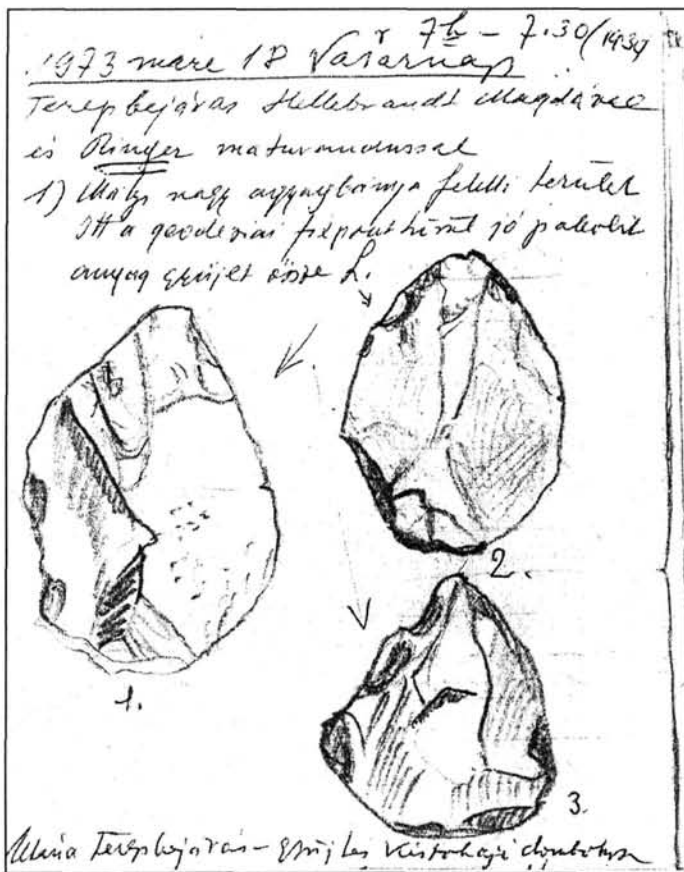 1973 márc 18 Vasárnap 7h – 7.30 (19.30)
Terepbejárás Hellebrandt Magdával
és Ringer maturandussal
1) Mályi nagy agyagbánya feletti terület
Itt a geodéziai fixpont körül jó paleolit
anyag gyűjlt össze
1.
2.
3.
Utána Terepbejárás – gyűjtés Kistokaji